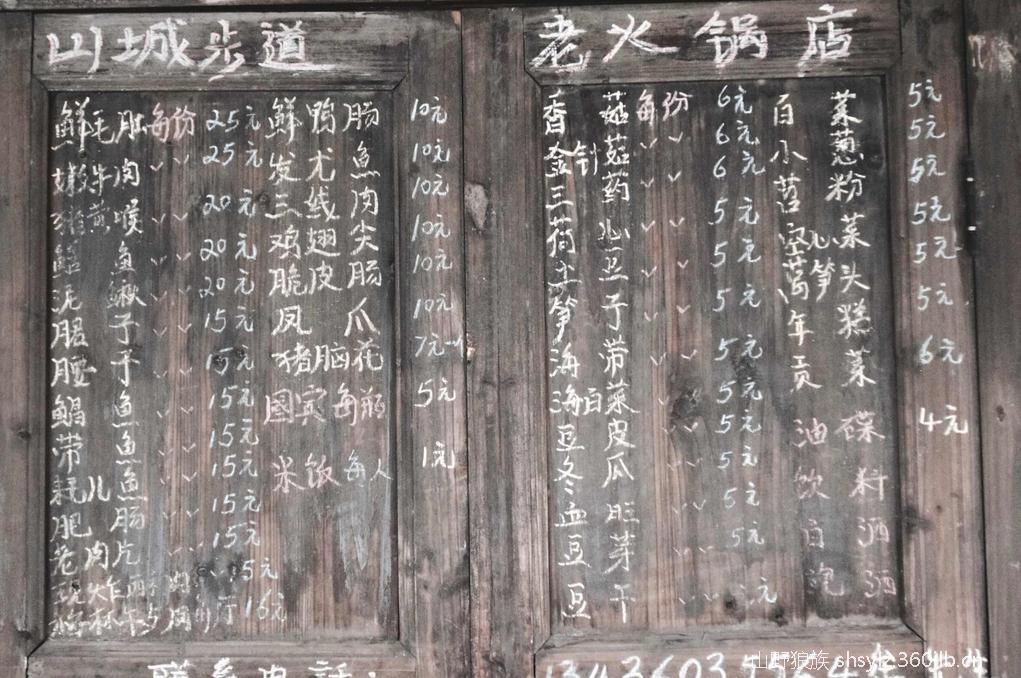 山城步道 老火锅店
鲜毛肚 每份 25元
嫩牛肉 〃 25元
猪黄喉 〃 20元
鳝鱼 20元
泥鳅 〃 20元
胭子 15元
腰子 〃 15元
鲳鱼 〃 15元
带鱼 〃 15元
耗儿鱼 〃 15元
肥肠 〃 15元
老肉片 〃 15元
15元
16元
鲜鸭肠 10元
发尤鱼 10元
三线肉 10元
鸡翅尖 10元
脆皮肠 10元
凤爪 10元
猪脑花 7元
国宾 每瓶 5元
米饭 每人 1元
香菇 每份 6元
金针菇 〃 6元
三药 〃 6元
荷心 〃 5元
土豆 〃 5元
笋子 〃 5元
海带 〃 5元
海白菜 5元
豆皮 〃 5元
冬瓜 〃 5元
血旺 〃 5元
豆芽 〃 5元
豆干 〃 元
百菜 5元
小葱 5元
苕粉 5元
空心菜 5元
莴笋头 5元
年糕 5元
贡菜 6元
油碟 4元
饮料
白酒
泡酒
联系电话:
山野狼族